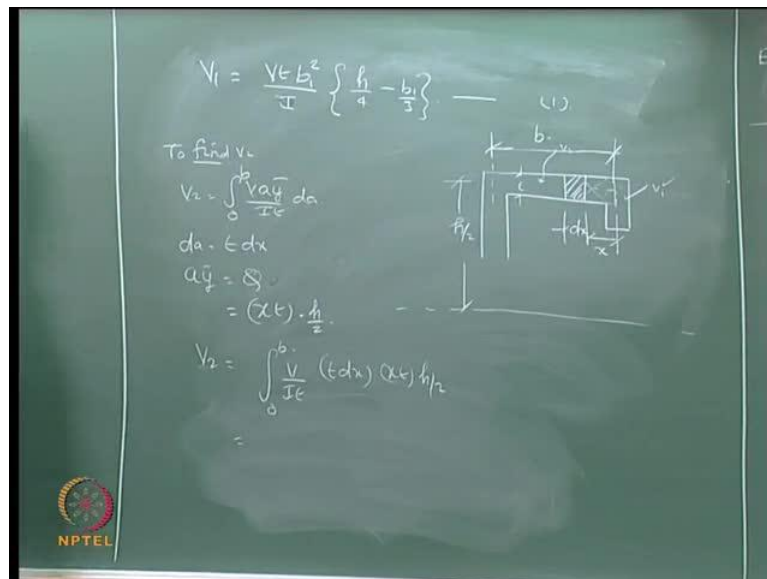 V₁ = Vtb₁²/I {h/4 - b₁/3}. — (1).
To find V₂
V₂ = ∫₀ᵇ Vaȳ/It da
da = t dx
aȳ = Q
= (xt) · h/2.
V₂ = ∫₀ᵇ V/It (t dx) (xt) h/2
=
b.
V₂
V₁
t
h/2
dx
x
E
NPTEL